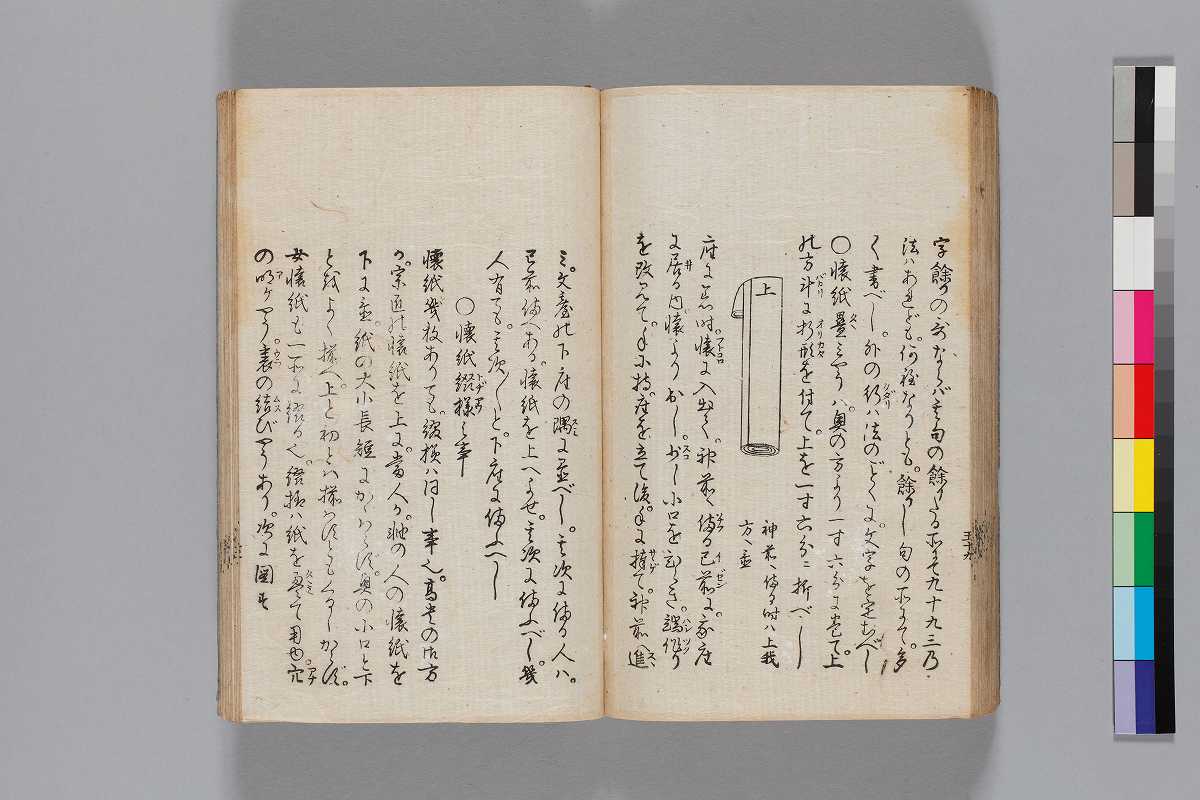 字餘りの哥ならバ其句の餘りたる所にて九十九三乃
法ハあれども。何程なりとも。餘りし句の所にて。多
く書べし。外の行ハ法のごとくに。文字を定むべし
〇懐紙畳ミやうハ。奥の方より一寸六分に巻て。上
の方計に折形を付て。上を一寸六分ニ折べし
上
神前へ備る時ハ上我
方へ
座に着時。懐に入出て。神前へ備る已前に。家座
に居る内懐より出し。少し小口をひらき。端作り
を改めて。手に持。座を立て後。手に捧て。神前へ進
五十九
ミ。文臺の下座の隅に置べし。其次に備る人ハ。
已前備へある懐紙を上へよせ。其次に備ふべし。幾
人有ても。其次〳〵と。下座に備ふべし
〇懐紙綴様之事
懐紙幾枚ありても。綴様ハ同じ事也。高貴の御方
か。宗匠の懐紙を上に。當人か。軸の人の懐紙を
下に重。紙の大小長短にかゝハらず。奥の小口と下
とをよく揃へ。上と初とハ揃ハずともくるしからず。
女懐紙も一所に綴る也。綴様ハ紙を畳て用ゆ。穴
の明ケやう。表の結びやうあり。次に圖す